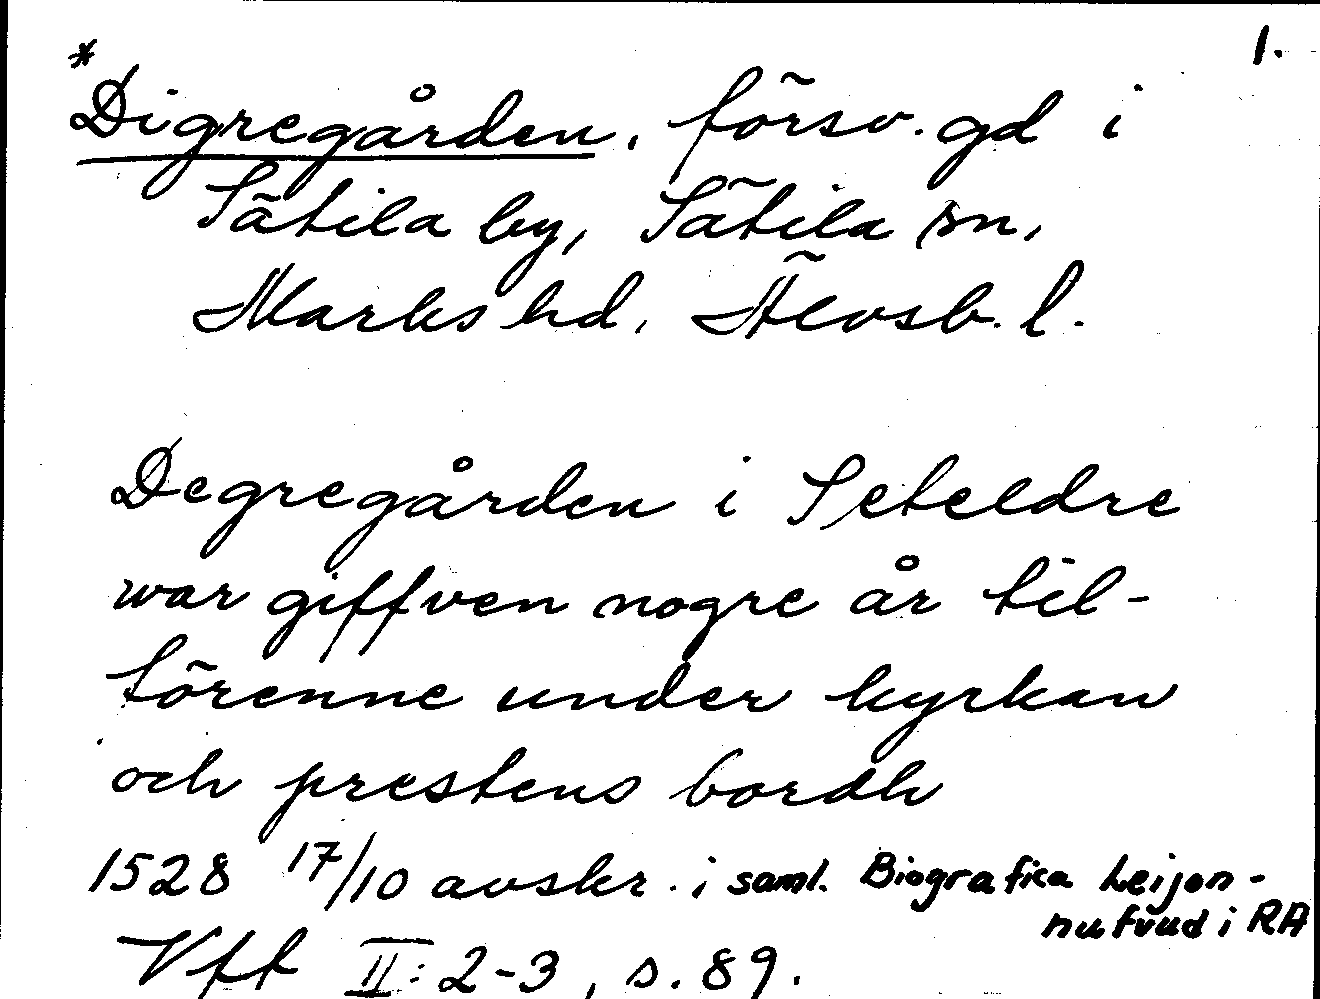 1.
*Digregården, försv. gd i
Sätila by, Sätila sn,
Marks hd, Älvsb. l.
Degregården i Seteldre
war giffven nogre år til-
förenne under kyrkan
och prestens bordh
1528 17/10 avskr. i saml. Biografica Leijon-
hufvud i RA
Vff II: 2-3, s. 89.